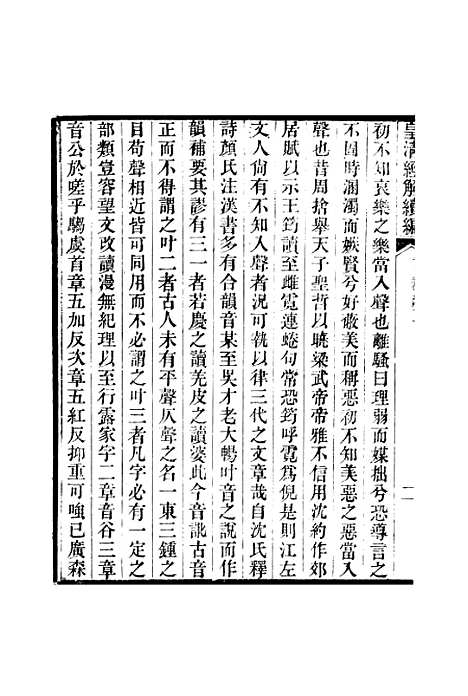 皇清經解續編
初不知哀樂之樂當入聲也離騷曰理弱而媒拙兮恐導言之
不固時溷濁而嫉賢兮好蔽美而稱惡初不知美惡之惡當入
聲也昔周捨舉天子聖哲以曉梁武帝帝雅不信用沈約作郊
居賦以示王筠讀至雌霓連蜷句常恐筠呼霓爲倪是則江左
文人尙有不知入聲者況可執以律三代之文章哉自沈氏釋
詩顏氏注漢書多有合韻音某至吳才老大暢叶音之說而作
韻補要其謬有三一者若慶之讀羌皮之讀婆此今音訛古音
正而不得謂之叶二者古人未有平聲仄聲之名一東三鍾之
目苟聲相近皆可同用而不必謂之叶三者凡字必有一定之
部類豈容望文改讀漫無紀理以至行露家字二章音谷三章
音公於嗟乎騶虞首章五加反次章五紅反抑重可嗤已廣森